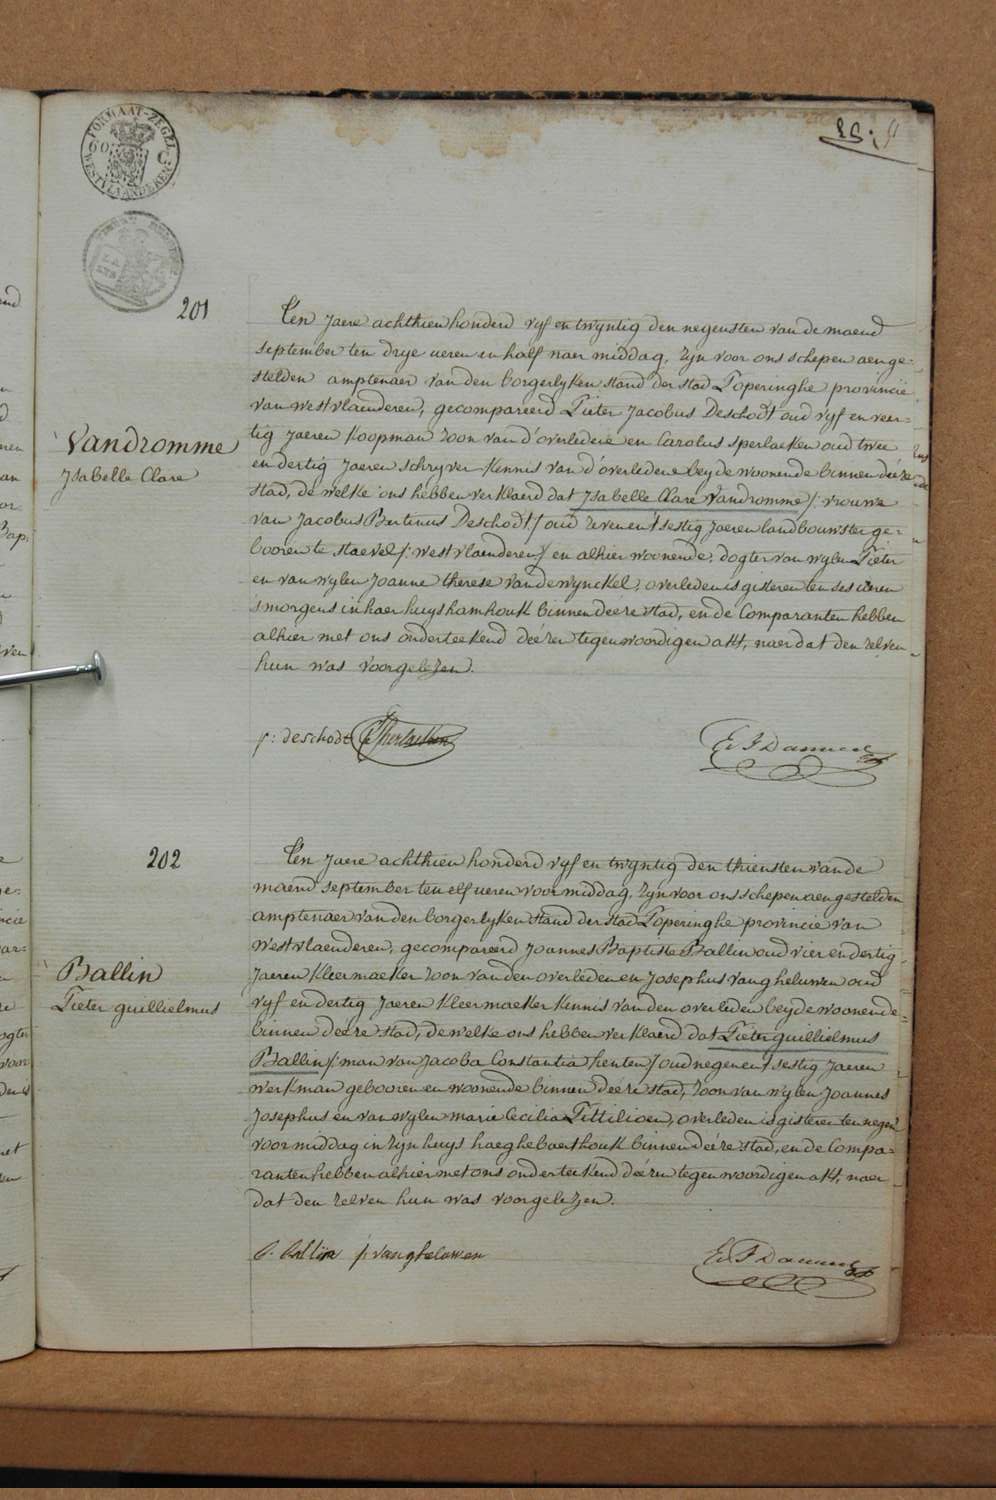 FORMAAT-ZEGEL
60 C
WESTVLAANDEREN
201
Vandromme
Ysabelle Clare
Ten jaere achthien honderd vyf en twyntig den negensten van de maend
september ten drye ueren en half naer middag, zyn voor ons schepen aenge-
stelden amptenaer van den borgerlyken stand der stad Poperinghe provincie
van westvlaenderen, gecompareerd Pieter Jacobus Deschodt oud vyf en veer-
tig jaeren koopman zoon van d'overledene en Carolus Sperlaeken oud twee
en dertig jaeren schryver kennis van d'overledene beyde woonende binnen deéze
stad, de welke ons hebben verklaerd dat Ysabelle Clare Vandromme /: vrouwe
van Jacobus Bertinus Deschodt :/ oud zeven en t'sestig jaeren landbouwster ge-
booren te staevel /: westvlaenderen :/ en alhier woonende, dogter van wylen Pieter
en van wylen Joanne therese Vandewynckel, overleden is gisteren ten ses ueren
's morgens in haer huys hamhouk binnen deeze stad, en de Comparanten hebben
alhier met ons onderteekend deézen tegenwoordigen akt, naer dat den zelven
hun was voorgelezen.
p: deschodt
202
Ballin
Pieter guillielmus
Ten jaere achthien honderd vyf en twyntig den thiensten van de
maend september ten elf ueren voor middag, zyn voor ons schepen aengestelden
amptenaer van den borgerlyken stand der stad Poperinghe provincie van
Westvlaenderen, gecompareerd Joannes Baptiste Ballin oud vier en dertig
jaeren kleermaeker zoon van den overleden en Josephus vangheluwen oud
vyf en dertig jaeren kleermaeker kennis van den overleden beyde woonende
binnen deéze stad, de welke ons hebben verklaerd dat Pieter guillielmus
Ballin /: man van Jacoba Constantia henten :/ oud negen en t'sestig jaeren
werkman gebooren en woonende binnen deeze stad, zoon van wylen Joannes
Josephus en van wylen marie Cecilia Pittilioen, overleden is gisteren ten negen
voor middag in zyn huys haeghebaerthouk binnen deéze stad, en de Compa-
ranten hebben alhier met ons onderteekend deézen tegenwoordigen akt, naer
dat den zelven hun was voorgelezen.
b. ballin j: vangheluwen